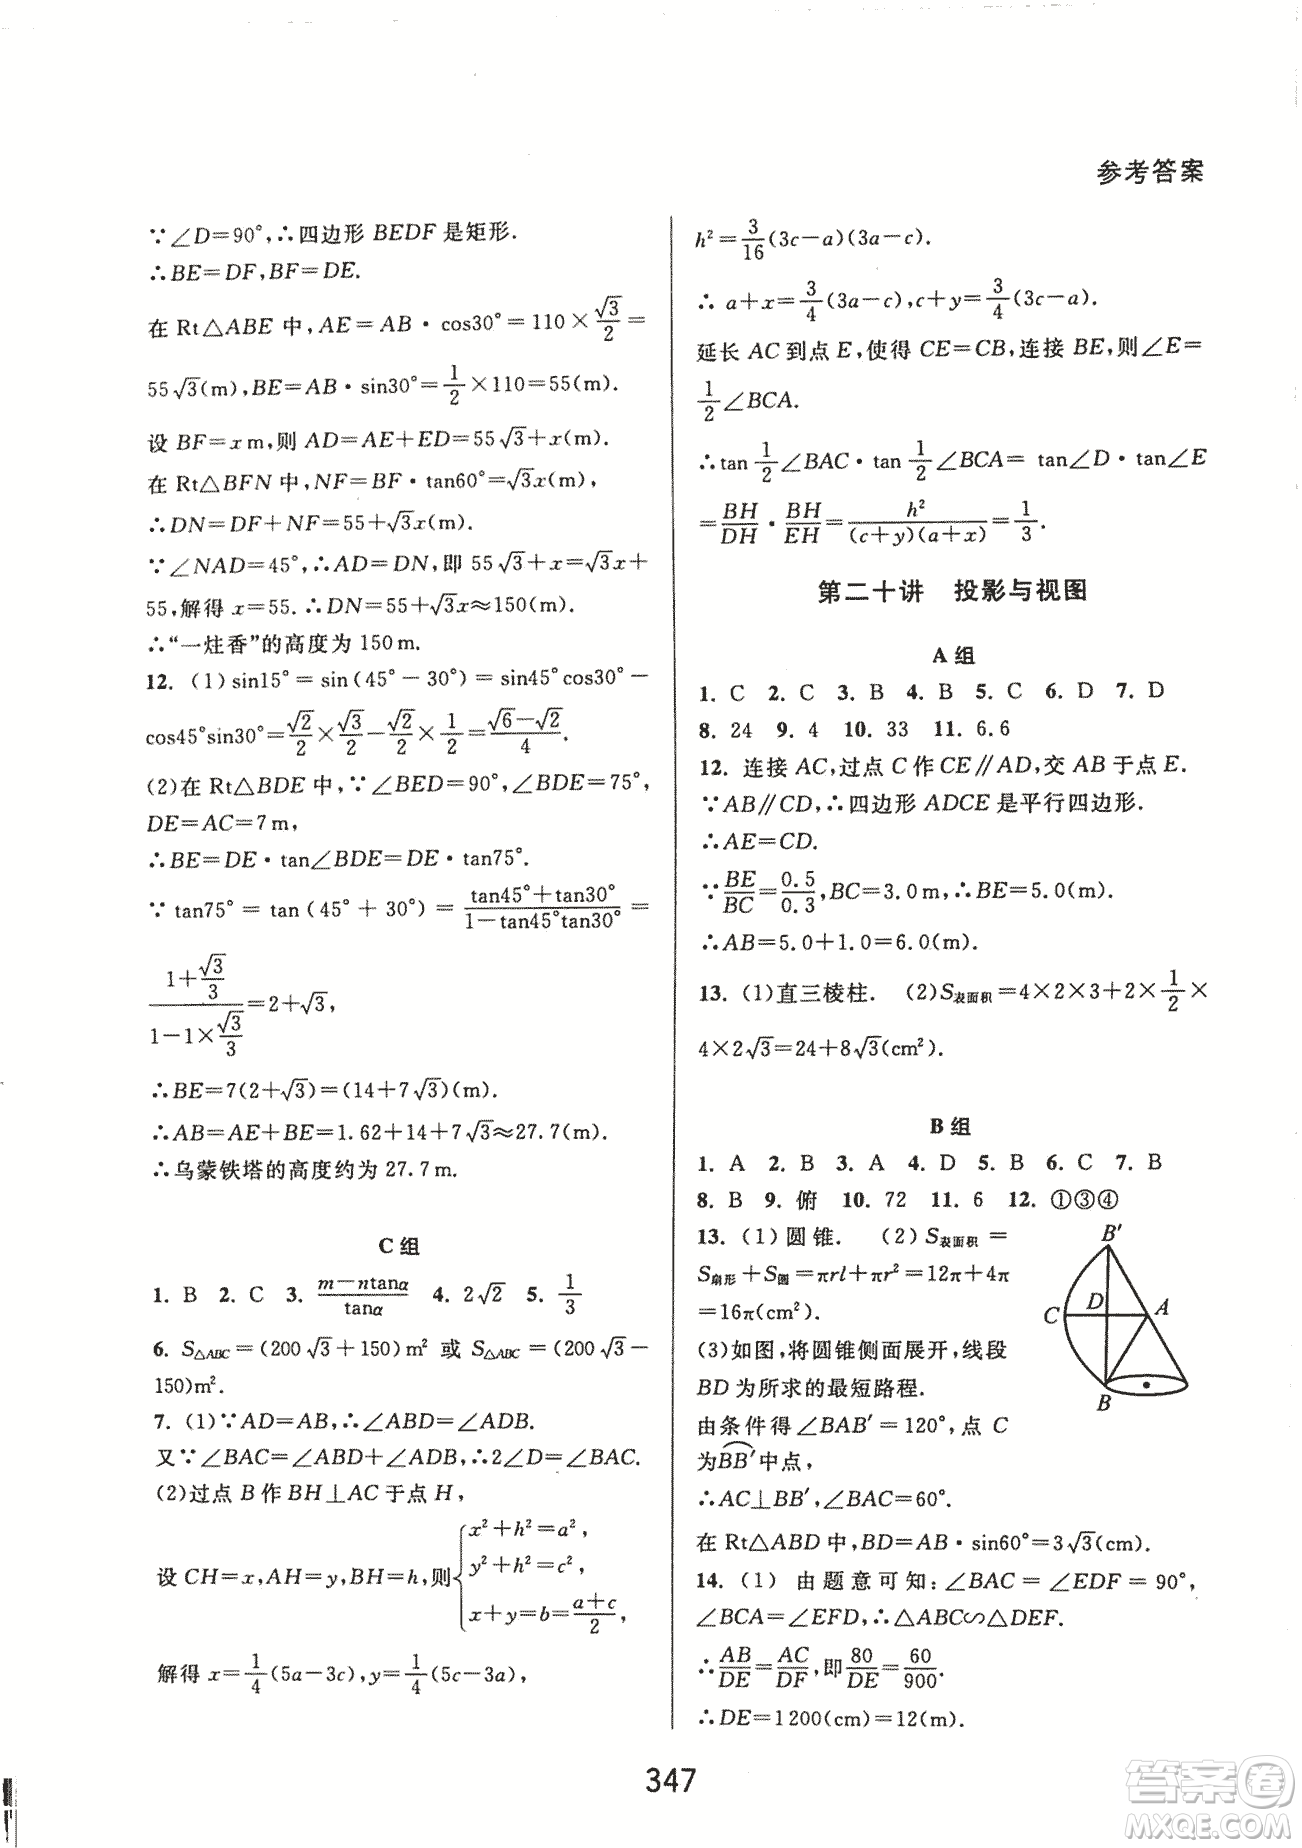 参考答案
∵∠D=90°,∴四边形 BEDF 是矩形.
∴BE=DF,BF=DE.
在 Rt△ABE 中,AE=AB·cos30°=110×√3/2=
55√3(m),BE=AB·sin30°=1/2×110=55(m).
设 BF=x m,则 AD=AE+ED=55√3+x(m).
在 Rt△BFN 中,NF=BF·tan60°=√3x(m),
∴DN=DF+NF=55+√3x(m).
∵∠NAD=45°,∴AD=DN,即 55√3+x=√3x+
55,解得 x=55.∴DN=55+√3x≈150(m).
∴“一炷香”的高度为 150 m.
12. (1)sin15°=sin(45°-30°)=sin45°cos30°-
cos45°sin30°=√2/2×√3/2-√2/2×1/2=(√6-√2)/4.
(2)在 Rt△BDE 中,∵∠BED=90°,∠BDE=75°,
DE=AC=7 m,
∴BE=DE·tan∠BDE=DE·tan75°.
∵tan75°=tan(45°+30°)=(tan45°+tan30°)/(1-tan45°tan30°)=
(1+√3/3)/(1-1×√3/3)=2+√3,
∴BE=7(2+√3)=(14+7√3)(m).
∴AB=AE+BE=1.62+14+7√3≈27.7(m).
∴乌蒙铁塔的高度约为 27.7 m.
C 组
1. B 2. C 3. (m-ntanα)/tanα 4. 2√2 5. 1/3
6. S△ABC=(200√3+150)m² 或 S△ABC=(200√3-
150)m².
7. (1)∵AD=AB,∴∠ABD=∠ADB.
又∵∠BAC=∠ABD+∠ADB,∴2∠D=∠BAC.
(2)过点 B 作 BH⊥AC 于点 H,
设 CH=x,AH=y,BH=h,则{x²+h²=a²,
y²+h²=c²,
x+y=b=(a+c)/2,
解得 x=1/4(5a-3c),y=1/4(5c-3a),
h²=3/16(3c-a)(3a-c).
∴a+x=3/4(3a-c),c+y=3/4(3c-a).
延长 AC 到点 E,使得 CE=CB,连接 BE,则∠E=
1/2∠BCA.
∴tan 1/2∠BAC·tan 1/2∠BCA=tan∠D·tan∠E
=BH/DH·BH/EH=h²/((c+y)(a+x))=1/3.
第二十讲 投影与视图
A 组
1. C 2. C 3. B 4. B 5. C 6. D 7. D
8. 24 9. 4 10. 33 11. 6.6
12. 连接 AC,过点 C 作 CE∥AD,交 AB 于点 E.
∵AB∥CD,∴四边形 ADCE 是平行四边形.
∴AE=CD.
∵BE/BC=0.5/0.3,BC=3.0 m,∴BE=5.0(m).
∴AB=5.0+1.0=6.0(m).
13. (1)直三棱柱. (2)S表面积=4×2×3+2×1/2×
4×2√3=24+8√3(cm²).
B 组
1. A 2. B 3. A 4. D 5. B 6. C 7. B
8. B 9. 俯 10. 72 11. 6 12. ①③④
13. (1)圆锥. (2)S表面积=
S扇形+S圆=πrl+πr²=12π+4π
=16π(cm²).
(3)如图,将圆锥侧面展开,线段
BD 为所求的最短路程.
由条件得∠BAB′=120°,点 C
为BB′中点,
∴AC⊥BB′,∠BAC=60°.
在 Rt△ABD 中,BD=AB·sin60°=3√3(cm).
B′
C
D
A
B
14. (1) 由题意可知:∠BAC=∠EDF=90°,
∠BCA=∠EFD,∴△ABC∽△DEF.
∴AB/DE=AC/DF,即80/DE=60/900.
∴DE=1200(cm)=12(m).
347
答案卷
MXQE.COM